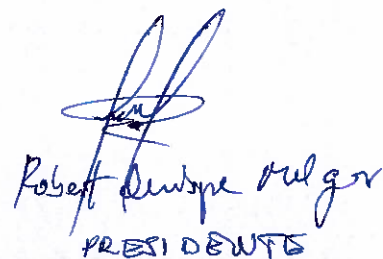 Robert Quispe Melgar
PRESIDENTE